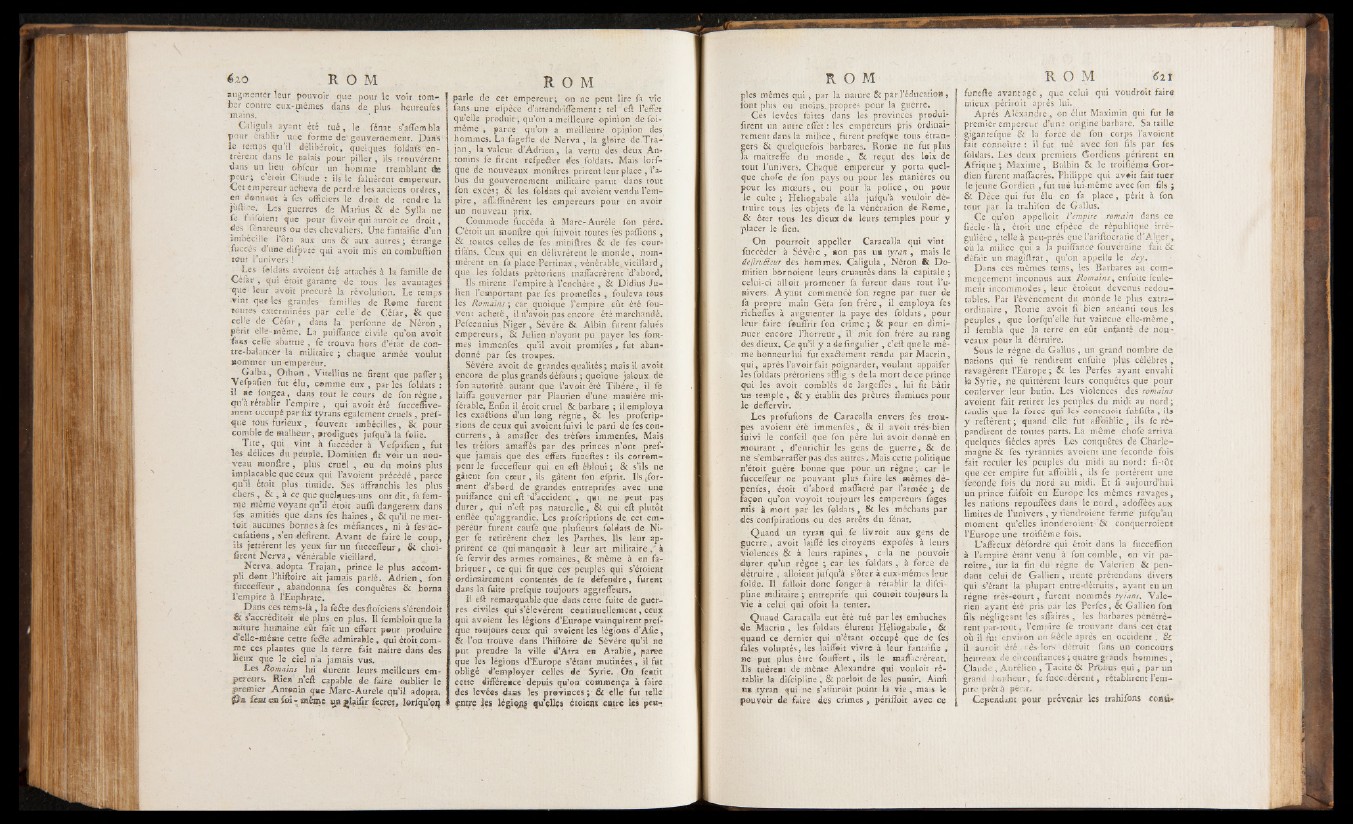 620 ROM
augmenter leur pouvoir que pour le voir tom-
ber contre eux-mêmes dans de plus heureuses
mains.
Caligula ayant été tué, le sénat s'assembla
pour établir une forme de gouvernement. Dans
le temps qu'il délibéroit, quelques soldats en-
trèrent dans le palais pour piller, ils trouvèrent
dans un lieu obscur un homme tremblant de
peur; c'étoit Claude : ils le saluèrent empereur.
Cet empereur acheva de perdre les anciens ordres,
en donnant à ses officiers le droit de rendre la
justice. Les guerres de Marius & de Sylla ne
se faisoient que pour savoir qui auroit ce droit,
des sénateurs ou des chevaliers. Une fantaisie d'un
imbécille l'ôta aux uns & aux autres; étrange
succès d'une dispute qui avoit mis en combustion
tout l'univers !
Les soldats avoient été attachés à la famille de
César, qui étoit garante de tous les avantages
que leur avoit procuré la révolution. Le temps
vint que les grandes familles de Rome furent
toutes exterminées par celle de César, & que
celle de César, dans la personne de Néron,
périt elle-même. La puissance civile qu'on avoit
sans cesse abattue, se trouva hors d'état de con-
tre-balancer la militaire; chaque armée voulut
nommer un empereur.
Galba, Othon, Vitellius ne firent que passer;
Vespasien fut élu, comme eux, par les soldats :
il ne songea, dans tout le cours de son règne,
qu'à rétablir l'empire, qui avoit été successive-
ment occupé par six tyrans également cruels, pres-
que tous furieux, souvent imbécilles, & pour
comble de malheur, prodigues jusqu'à la folie.
Tite, qui vint à succéder à Vespasien, fut
les délices du peuple. Domitien fit voir un nou-
veau monstre, plus cruel, ou du moins plus
implacable que ceux qui l'avoient précédé, parce
qu'il étoit plus timide. Ses affranchis les plus
chers, &, à ce que quelques-uns ont dit, sa fem-
me même voyant qu'il étoit aussi dangereux dans
ses amitiés que dans ses haînes, & qu'il ne met-
toit aucunes bornes à ses méfiances, ni à ses ac-
cusations, s'en défirent. Avant de faire le coup,
ils jettèrent les yeux sur un successeur, & choi-
sirent Nerva, vénérable vieillard.
Nerva adopta Trajan, prince le plus accom-
pli dont l'histoire ait jamais parlé. Adrien, son
successeur, abandonna ses conquêtes & borna
l'empire à l'Euphrate.
Dans ces tems-là, la secte des stoïciens s'étendoit
& s'accréditoit de plus en plus. Il sembloit que la
nature humaine eût fait un effort pour produire
d'elle-même cette secte admirable, qui étoit com-
me ces plantes que la terre fait naître dans des
lieux que le ciel n'a jamais vus.
Les Romains lui durent leurs meilleurs em-
pereurs. Rien n'est capable de faire oublier le
premier Antonin que Marc-Aurele qu'il adopta.
On sent en soi-même un plaisir secret, lorsqu'on
ROM
parle de cet empereur; on ne peut lire sa vie
sans une espèce d'attendrissement : tel est l'effet
qu'elle produit, qu'on a meilleure opinion de soi-
même, parce qu'on a meilleure opinion des
hommes. La sagesse de Nerva, la gloire de Tra-
jan, la valeur d'Adrien, la vertu des deux An-
tonins se firent respecter des soldats. Mais lors-
que de nouveaux monstres prirent leur place, l'a-
bus du gouvernement militaire parut dans tout
son excès; & les soldats qui avoient vendu l'em-
pire, assassinèrent les empereurs pour en avoir
un nouveau prix.
Commode succéda à Marc-Aurèle son père.
C'étoit un monstre qui suivoit toutes ses passions,
& toutes celles de ses ministres & de ses cour-
tisans. Ceux qui en délivrèrent le monde, nom-
mèrent en sa place Pertinax, vénérable vieillard,
que les soldats prétoriens massacrèrent d'abord.
Ils mirent l'empire à l'enchère, & Didius Ju-
lien l'emportant par ses promesses, souleva tous
les Romains; car quoique l'empire eût été sou-
vent acheté, il n'avoit pas encore été marchandé.
Pescennius Niger, Sévère & Albin furent salués
empereurs, & Julien n'ayant pu payer les som-
mes immenses qu'il avoit promises, fut aban-
donné par ses troupes.
Sévère avoit de grandes qualités; mais il avoit
encore de plus grands défauts; quoique jaloux de
son autorité autant que l'avoit été Tibère, il se
laissa gouverner par Plautien d'une manière mi-
sérable. Enfin il étoit cruel & barbare; il employa
les exactions d'un long règne, & les proscrip-
tions de ceux qui avoient suivi le parti de ses con-
currens, à amasser des trésors immenses. Mais
les trésors amassés par des princes n'ont pres-
que jamais que des effets funestes : ils corrom-
pent le successeur qui en est ébloui; & s'ils ne
gâtent son cœur, ils gâtent son esprit. Ils for-
ment d'abord de grandes entreprises avec une
puissance qui est d'accident, qui ne peut pas
durer, qui n'est pas naturelle, & qui est plutôt
enflée qu'aggrandie. Les proscriptions de cet em-
pereur furent cause que plusieurs soldats de Ni-
ger se retirèrent chez les Parthes. Ils leur ap-
prirent ce qui manquoit à leur art militaire, à
se servir des armes romaines, & même à en fa-
briquer, ce qui fit que ces peuples qui s'étoient
ordinairement contentés de se défendre, furent
dans la suite presque toujours aggresseurs.
Il est remarquable que dans cette suite de guer-
res civiles qui s'élevèrent continuellement, ceux
qui avoient les légions d'Europe vainquirent pres-
que toujours ceux qui avoient les légions d'Asie,
& l'on trouve dans l'histoire de Sévère qu'il ne
put prendre la ville d'Atra en Arabie, parce
que les légions d'Europe s'étant mutinées, il fut
obligé d'employer celles de Syrie. On sentit
cette différence depuis qu'on commença à faire
des levées dans les provinces; & elle fut telle
entre les légions qu'elles étoient entre les peu-
ROM
ples mêmes qui, par la nature & par l'éducation,
sont plus ou moins propres pour la guerre.
Ces levées faites dans les provinces produi-
sirent un autre effet : les empereurs pris ordinai-
rement dans la milice, furent presque tous étran-
gers & quelquefois barbares. Rome ne fut plus
la maîtresse du monde, & reçut des loix de
tout l'univers. Chaque empereur y porta quel-
que chose de son pays ou pour les manières ou
pour les mœurs, ou pour la police, ou pour
le culte; Héliogabale alla jusqu'à vouloir dé-
truire tous les objets de la vénération de Rome,
& ôter tous les dieux de leurs temples pour y
placer le sien.
On pourroit appeller Caracalla qui vint
succéder à Sévère, non pas un tyran, mais le
destructeur des hommes. Caligula, Néron & Do-
mitien bornoient leurs cruautés dans la capitale;
celui-ci alloit promener sa fureur dans tout l'u-
nivers. Ayant commencé son regne par tuer de
sa propre main Géta son frère, il employa ses
richesses à augmenter la paye des soldats, pour
leur faire souffrir son crime; & pour en dimi-
nuer encore l'horreur, il mit son frère au rang
des dieux. Ce qu'il y a de singulier, c'est que le mê-
me honneur lui fut exactement rendu par Macrin,
qui, après l'avoir fait poignarder, voulant appaiser
les soldats prétoriens affligés de la mort de ce prince
qui les avoit comblés de largesses, lui fit bâtir
un temple, & y établit des prêtres flamines pour
le desservir.
Les profusions de Caracalla envers ses trou-
pes avoient été immenses, & il avoit très-bien
suivi le conseil que son père lui avoit donné en
mourant, d'enrichir les gens de guerre, & de
ne s'embarrasser pas des autres. Mais cette politique
n'étoit guère bonne que pour un règne; car le
successeur ne pouvant plus faire les mêmes dé-
penses, étoit d'abord massacré par l'armée; de
façon qu'on voyoit toujours les empereurs sages
mis à mort par les soldats, & les méchans par
des conspirations ou des arrêts du sénat.
Quand un tyran qui se livroit aux gens de
guerre, avoit laissé les citoyens exposés à leurs
violences & à leurs rapines, cela ne pouvoit
durer qu'un règne; car les soldats, à force de
détruire, alloient jusqu'à s'ôter à eux-mêmes leur
solde. Il falloit donc songer à rétablir la disci-
pline militaire; entreprise qui coûtoit toujours la
vie à celui qui osoit la tenter.
Quand Caracalla eut été tué par les embuches
de Macrin, les soldats élurent Héliogabale, &
quand ce dernier qui n'étant occupé que de ses
sales voluptés, les laissoit vivre à leur fantaisie,
ne put plus être souffert, ils le massacrèrent.
Ils tuèrent de même Alexandre qui vouloit ré-
tablir la discipline, & parloit de les punir. Ainsi
un tyran qui ne s'assuroit point la vie, mais le
pouvoir de faire des crimes, périssoit avec ce
ROM 621
funeste avantage, que celui qui voudroit faire
mieux périroit après lui.
Après Alexandre, on élut Maximin qui fut le
premier empereur d'une origine barbare. Sa taille
gigantesque & la force de son corps l'avoient
fait connoître : il fut tué avec son fils par ses
soldats. Les deux premiers Gordiens périrent en
Afrique; Maxime, Balbin & le troisième Gor-
dien furent massacrés. Philippe qui avoit fait tuer
le jeune Gordien, fut tué lui-même avec son fils;
& Dèce qui fut élu en sa place, périt à son
tour par la trahison de Gallus.
Ce qu'on appelloit l'empire romain dans ce
siècle-là, étoit une espèce de république irré-
gulière, telle à peu-près que l'aristocratie d'Alger,
où la milice qui a la puissance souveraine fait &
défait un magistrat, qu'on appelle le dey.
Dans ces mêmes tems, les Barbares au com-
mencement inconnus aux Romains, ensuite seule-
ment incommodes, leur étoient devenus redou-
tables. Par l'événement du monde le plus extra-
ordinaire, Rome avoit si bien anéanti tous les
peuples, que lorsqu'elle fut vaincue elle-même,
il sembla que la terre en eût enfanté de nou-
veaux pour la détruire.
Sous le règne de Gallus, un grand nombre de
nations qui se rendirent ensuite plus célèbres,
ravagèrent l'Europe; & les Perses ayant envahi
la Syrie, ne quittèrent leurs conquêtes que pour
conserver leur butin. Les violences des romains
avoient fait retirer les peuples du midi au nord;
tandis que la force qui les contenoit subsista, ils
y restèrent; quand elle fut affoiblie, ils se ré-
pandirent de toutes parts. La même chose arriva
quelques siècles après. Les conquêtes de Charle-
magne & ses tyrannies avoient une seconde fois
fait reculer les peuples du midi au nord : si-tôt
que cet empire fut affoibli, ils se portèrent une
seconde fois du nord au midi. Et si aujourd'hui
un prince faisoit en Europe les mêmes ravages,
les nations repoussées dans le nord, adossées aux
limites de l'univers, y tiendroient ferme jusqu'au
moment qu'elles inonderoient & conquerroient
l'Europe une troisième fois.
L'affreux désordre qui étoit dans la succession
à l'empire étant venu à son comble, on vit pa-
roître, sur la fin du règne de Valerien & pen-
dant celui de Gallien, trente prétendans divers
qui s'étant la plupart entre-détruits, ayant eu un
règne très-court, furent nommés tyrans. Vale-
rien ayant été pris par les Perses, & Gallien son
fils négligeant les affaires, les barbares pénétrè-
rent par-tout, l'empire se trouvant dans cet état
où il fut environ un siècle après en occident, &
il auroit été dès-lors détruit sans un concours
heureux de circonstances; quatre grands hommes,
Claude, Aurélien, Tacite & Probus qui, par un
grand bonheur, se succédèrent, rétablirent l'em-
pire prêt à périr.
Cependant pour prévenir les trahisons conti-